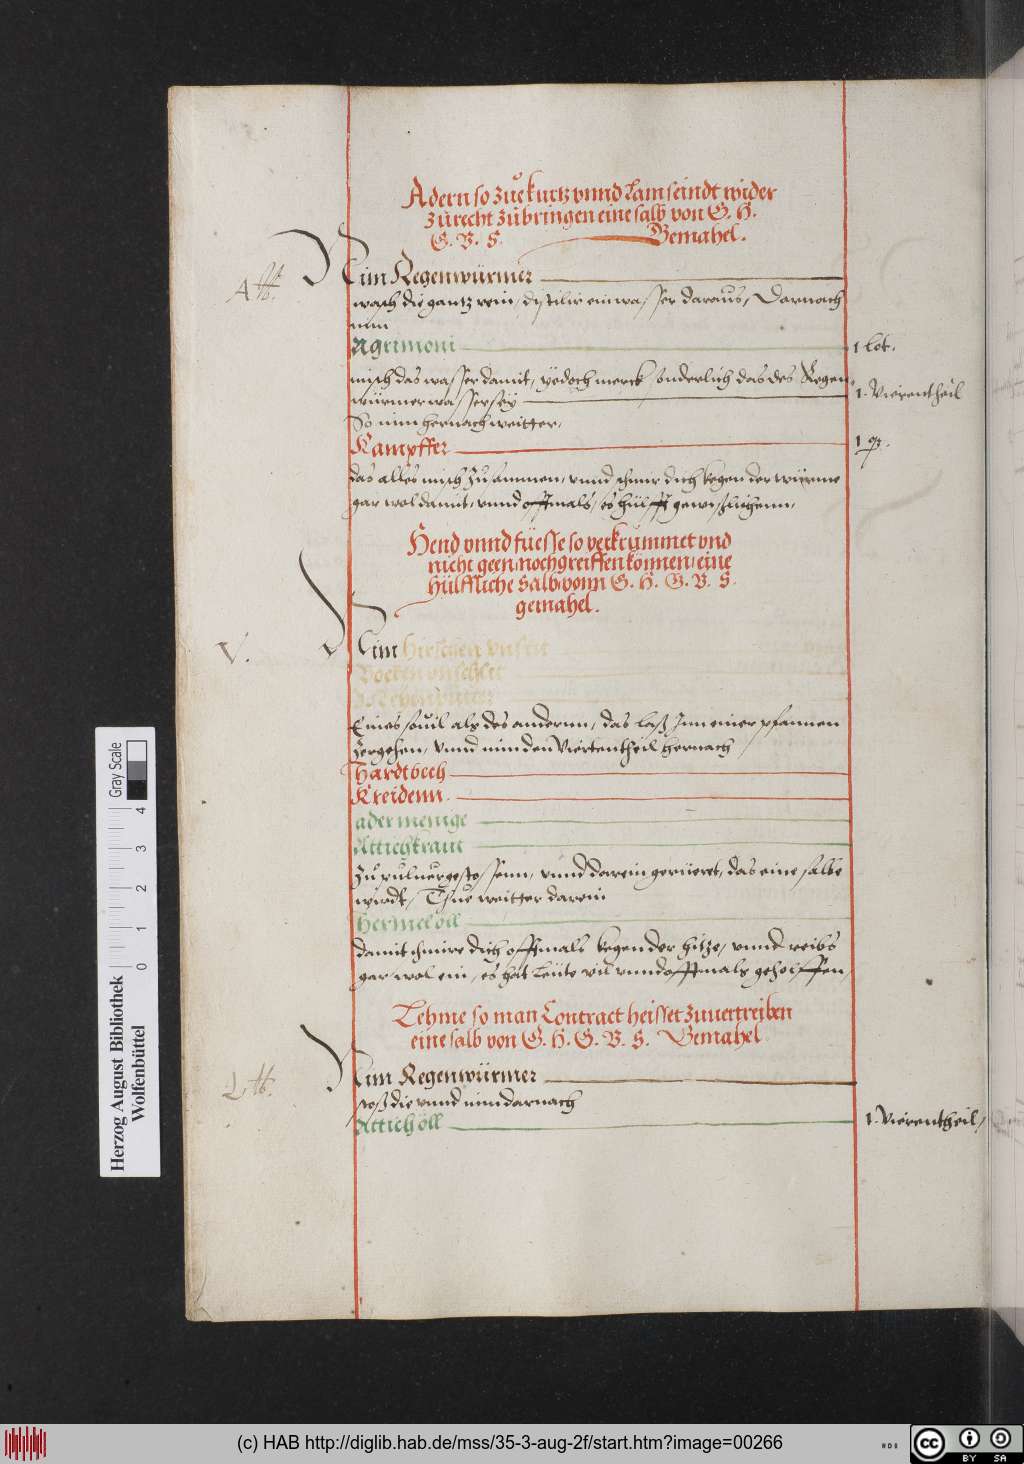 Adern so zue kurtz vnnd Lam seindt wider
zurecht zubringen eine salb von G. H.
G. V. S. Gemahel.
A
Nim Regenwürmer
wasch die gantz rein, distilir ein wasser daraus, Darnach
nim
Agrimoni 1 Lot.
misch das wasser damit, yedoch merck sonderlich das des Regen
würmer wasser sey 1. Vierentheil
So nim hernach weitter,
Kampffer 1 q.
das alles misch zusammen, vnnd schmir dich kegen der würme
gar wol damit, vnnd offtmals, es hülfft gewißlichenn,
Hend vnnd füesse so verkrummet vnd
nicht geen, noch greiffen können, eine
hülffliche Salb vonn G. H. G. V. S.
gemahel.
V.
Nim Hirschen vnslit
Bocken vnschlit
Eines souil als des andernn, das laß Inn einer pfannen
zergehen, vnnd nim den Viertentheil hernach
Hardtbech
Kreidenn
adermenige
Attichkraut
Zu puluer gestossenn, vnnd darein gerüeret, das eine salbe
wirdt, Thue weitter darein
Hermelöll
damit schmire dich offtmals kegen der hitze, vnnd reibs
gar wol ein, es hat Leute vil vnnd offtmals geholffen,
Lehme so man Contract heisset zuuertreiben
eine salb von G. H. G. V. S. Gemahel
Nim Regenwürmer
stoß die vnnd nim darnach
Attichöll 1. Vierentheil,
Herzog August Bibliothek
Wolfenbüttel
0 1 2 3 4
Gray Scale
(c) HAB http://diglib.hab.de/mss/35-3-aug-2f/start.htm?image=00266
cc BY SA